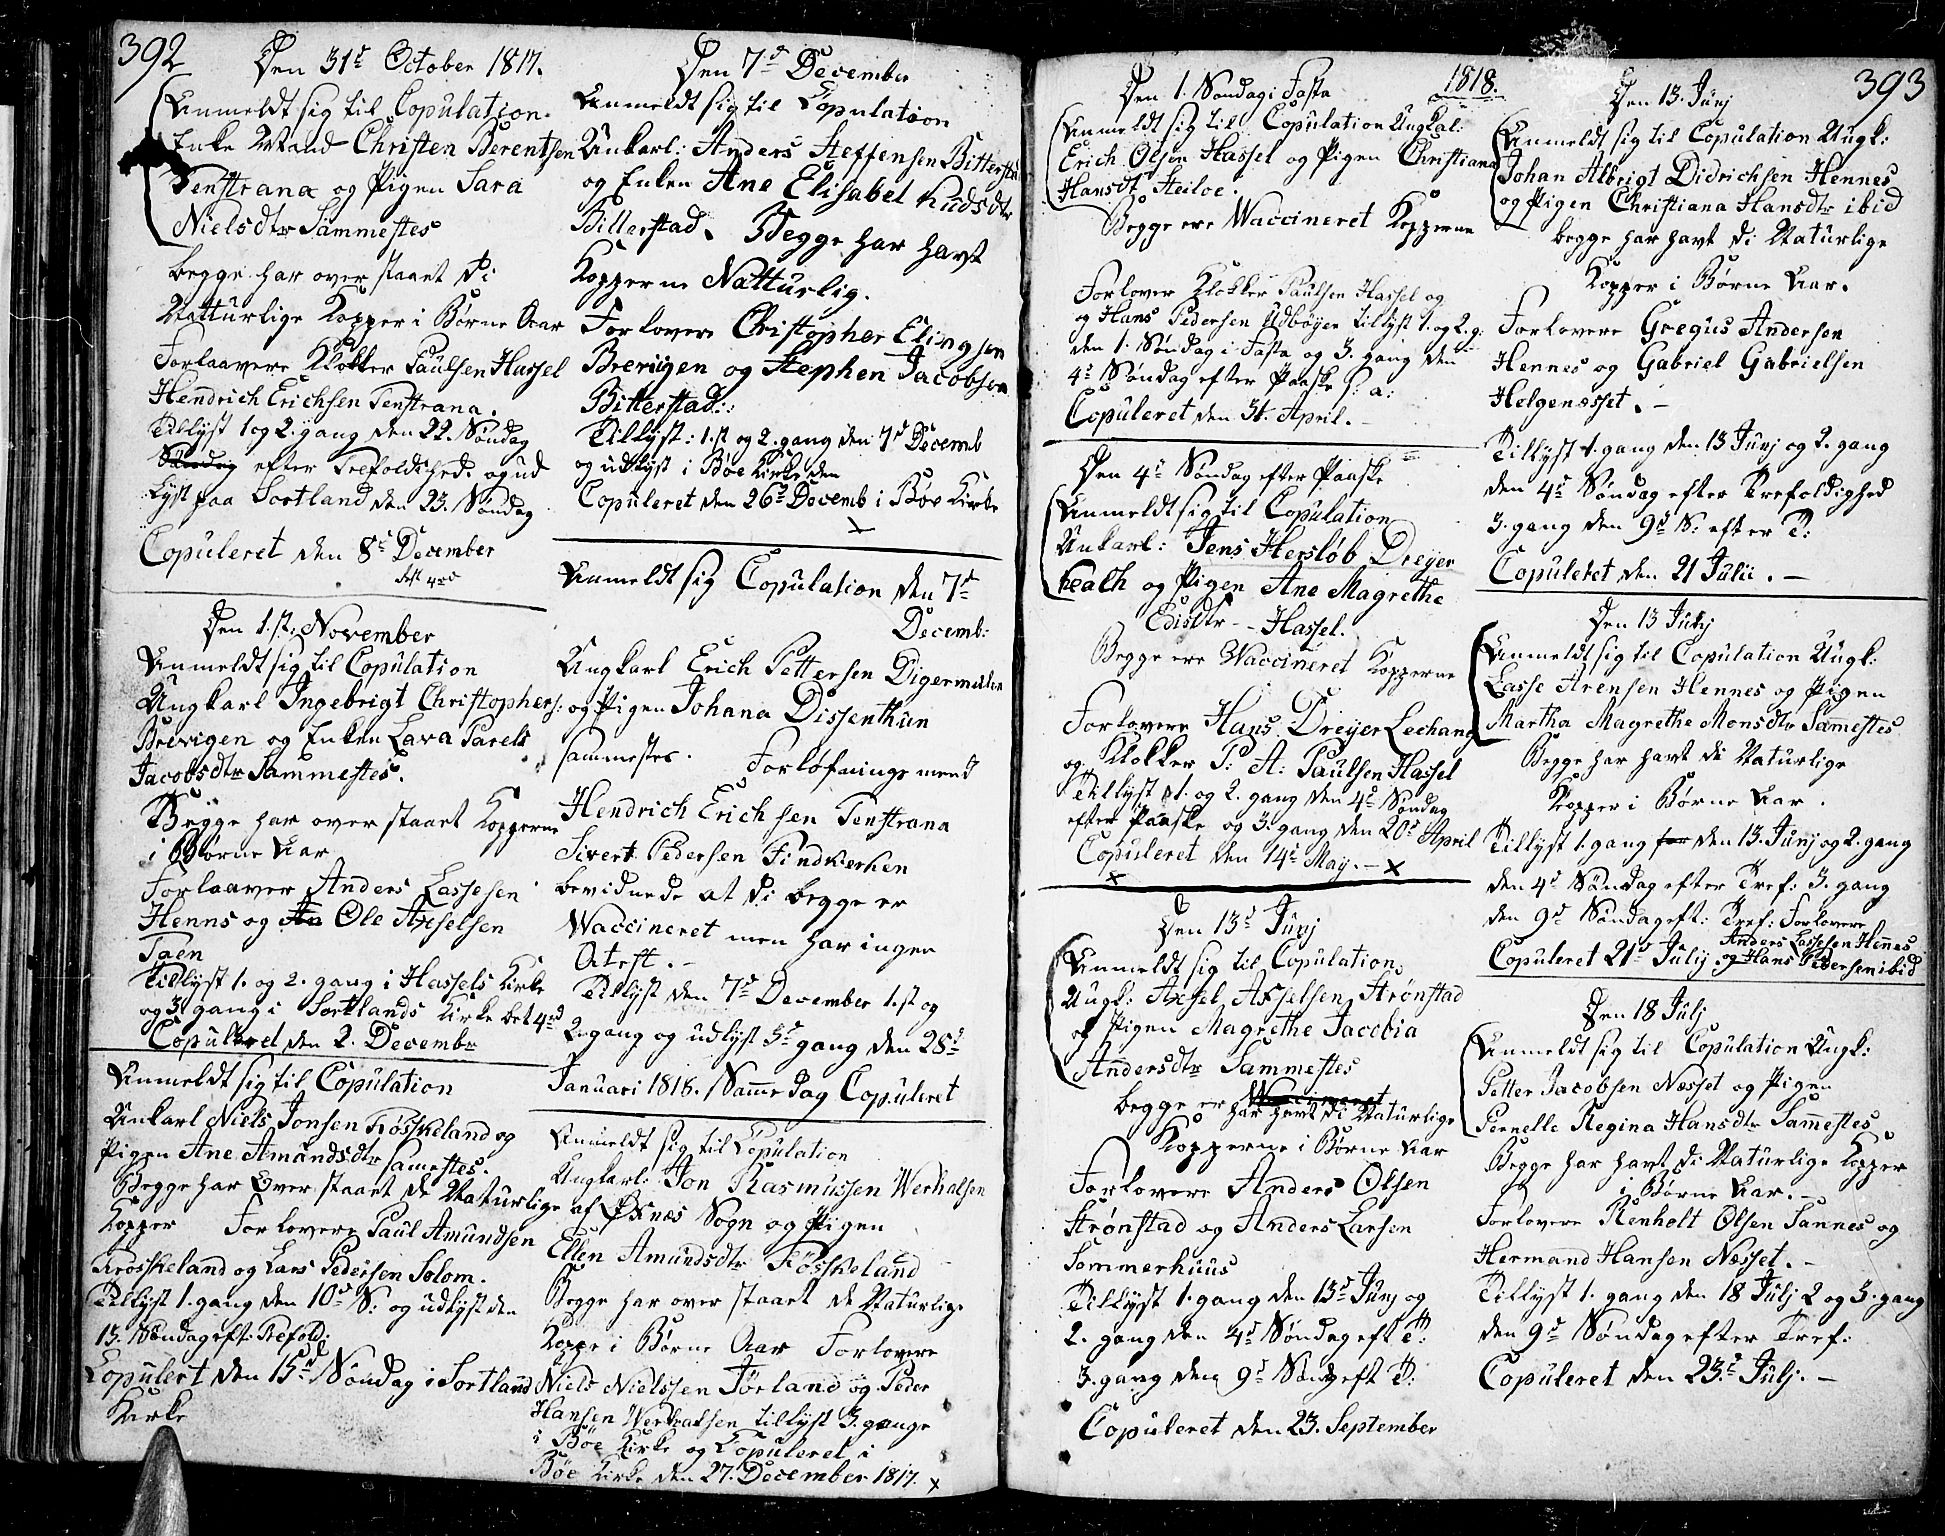 392
Den 31d October 1817.
Anmeldt sig til Copulation.
Enke Mand Christen Berentsen
Fenstrana og Pigen Sara
Nielsdtr Sammestes
begge har over staaet di
Natturlige Kopper i Børne Aar
Forlaavere Klokker Paulsen Hassel
Hendrich Erichsen Fenstrana.
Tillyst 1 og 2. gang den 22. Søndag
Søndag efter Trefoldighed. og ud
lyst paa Sortland den 23. Søndag
Copuleret den 8d December
Den 1.st. November
Anmeldt sig til Copulation
Ungkarl Ingebrigt Christophers:
Brevigen og Enken Lava Parels
Jacobsdtr Sammestes.
Begge har over staaet Kopperne
i Børne Aar
Forlaaver Anders Lassesen
Henns og An Ole Axselsen
Taen
Tillyst 1. og 2. gang i Hassels Kirke
og 3 gang i Sortlands Kirke bet 4
Copuleret den 2. Decembr
Anmeldt sig til Copulation
Unkarl Niels Jonsen Røsskeland og
Pigen Ane Amundsdtr samestes.
Begge har over staaet de Naturlige
Kopper Forlovere Paul Amundsen
Røsskeland og Lars Pedersen Solom.
Tillyst 1. gang den 10d S: og udlyst den
13. Søndag eft. Trefold:
Copulert den 15d Søndag i Sortland
Kirke
Den 7d December
Anmeldt sig til Copulation
Unkarl: Anders Steffensen Bitterstad
og Enken Ane Elisabet Kudsdtr
Bitterstad. Begge har havt
Kopperne Natturlig.
Forlovere Christopher Elingsen
Brevigen og Stephen Jacobsen
Bitterstad:
Tillyst: 1.st og 2. gang den 7d Decemb
og udlyst i Bøe Kirke den
Copuleret den 26d Decemb i Bøe Kirke
Anmeldt sig Copulation den 7d
Decemb:
Ungkarl Erich Pettersen Digermulen
og Pigen Johana Dissenthun
sammestes. Forlofnings mend
Hendrich Erichsen Fenstrana
Sivert Pedersen Findverken
bevidnede at di begge er
Waccineret men har ingen
Atest.
Tillyst den 7d December 1.st og
2 gang og udlyst 3d gang den 28d
Januari 1818. Samme dag Copuleret
Anmeldt sig til Copulation
Ungkarl: Jon Rasmussen Werhalsen
af Øxnæs Sogn og Pigen
Ellen Amundsdtr Røsskeland
Begge har over staaet de Naturlige
Koppe i Børne Aar Forlovere
Niels Nielssen Jørland og Peder
Hansen Werhalsen tillyst 3. gange
i Bøe Kirke og Copuleret i
Bøe Kirke den 27. December 1817. x
393
1818.
Den 1. Søndag i Fasta
Anmeldt sig til Copulation Ungkal:
Erich Olsen Hassel og Pigen Christiana
Hansdt Steiloe.
Begge ere Waccineret Kopperne
Forlover Klokker Paulsen Hassel og
og Hans Pedersen Udbøyer tillyst 1. og 2. g:
den 1. Søndag i Fasta og 3. gang den
4d Søndag efter Paaske s: a:
Copuleret den 31. April.
Den 4d Søndag efter Paaske
Anmeldt sig til Copulation
Unkarl: Jens Hersløb Dreyer
Krath og Pigen Ane Magrethe
Edisdtr - Hassel.
Begge ere Waccineret Kopperne
Forlovere Hans Dreyer Lechang
og Klokker P: A: Paulsen Hassel
Tillyst 1. og 2. gang den 4d Søndag
efter Paaske og 3. gang den 20d April
Copuleret den 14d May. - x
x
Den 13d Junj
Anmeldt sig til Copulation
Ungk: Axsel Axselsen Strønstad
og Pigen Magrethe Jacobia
Andersdtr Sammestes
begge er Waccineret
har havt di Naturlige
Kopperne i Børne Aar
Forlovere Anders Olsen
Strønstad og Anders Larsen
Sommerhuus
Tillyst 1. gang den 13d Junj og
2. gang den 4d Søndag eft T:
3. gang den 9d Søndg eft T:
Copuleret den 23. September
Den 13. Junj
Anmeldt sig til Copulation Ungk:
Johan Albrigt Didrichsen Hennes
og Pigen Christiana Hansdtr ibid
begge har havt di Naturlige
Kopper i Børne Aar.
Forlovere Gregus Andersen
Hennes og Gabriel Gabrielsen
Helgenæsset. -
Tillyst 1. gang den 13 Junj og 2. gang
den 4d Søndag efter Trefoldighed
3. gang den 9d S: efter T:
Copuleret den 21 Julii. -
Den 13 Julj
Anmeldt sig til Copulation Ungk:
Lasse Arensen Hennes og Pigen
Martha Magrethe Monsdtr Samestes
Begge har havt di Naturlige
Kopper i Børne Aar.
Tillyst 1. gang for den 13. Junj og 2. gang
den 4d Søndag efter Tref: 3. gang
den 9d Søndag eft: Tref: Forlovere
Anders Lassesen Hennes
Copuleret 21d Julij og Hans Pedersen ibid
Den 18 Julj
Anmeldt sig til Copulation Ungk:
Petter Jacobsen Næsset og Pigen
Pernelle Regina Hansdtr Samestes
Begge har havt di Naturlige Kopper
i Børne Aar. -
Forlovere Renholt Olsen Sannes og
Hermand Hansen Næsset. -
Tillyst 1. gang den 18 Julj 2 og 3. gang
den 9d Søndag efter Tref:
Copuleret den 23d Julj. -